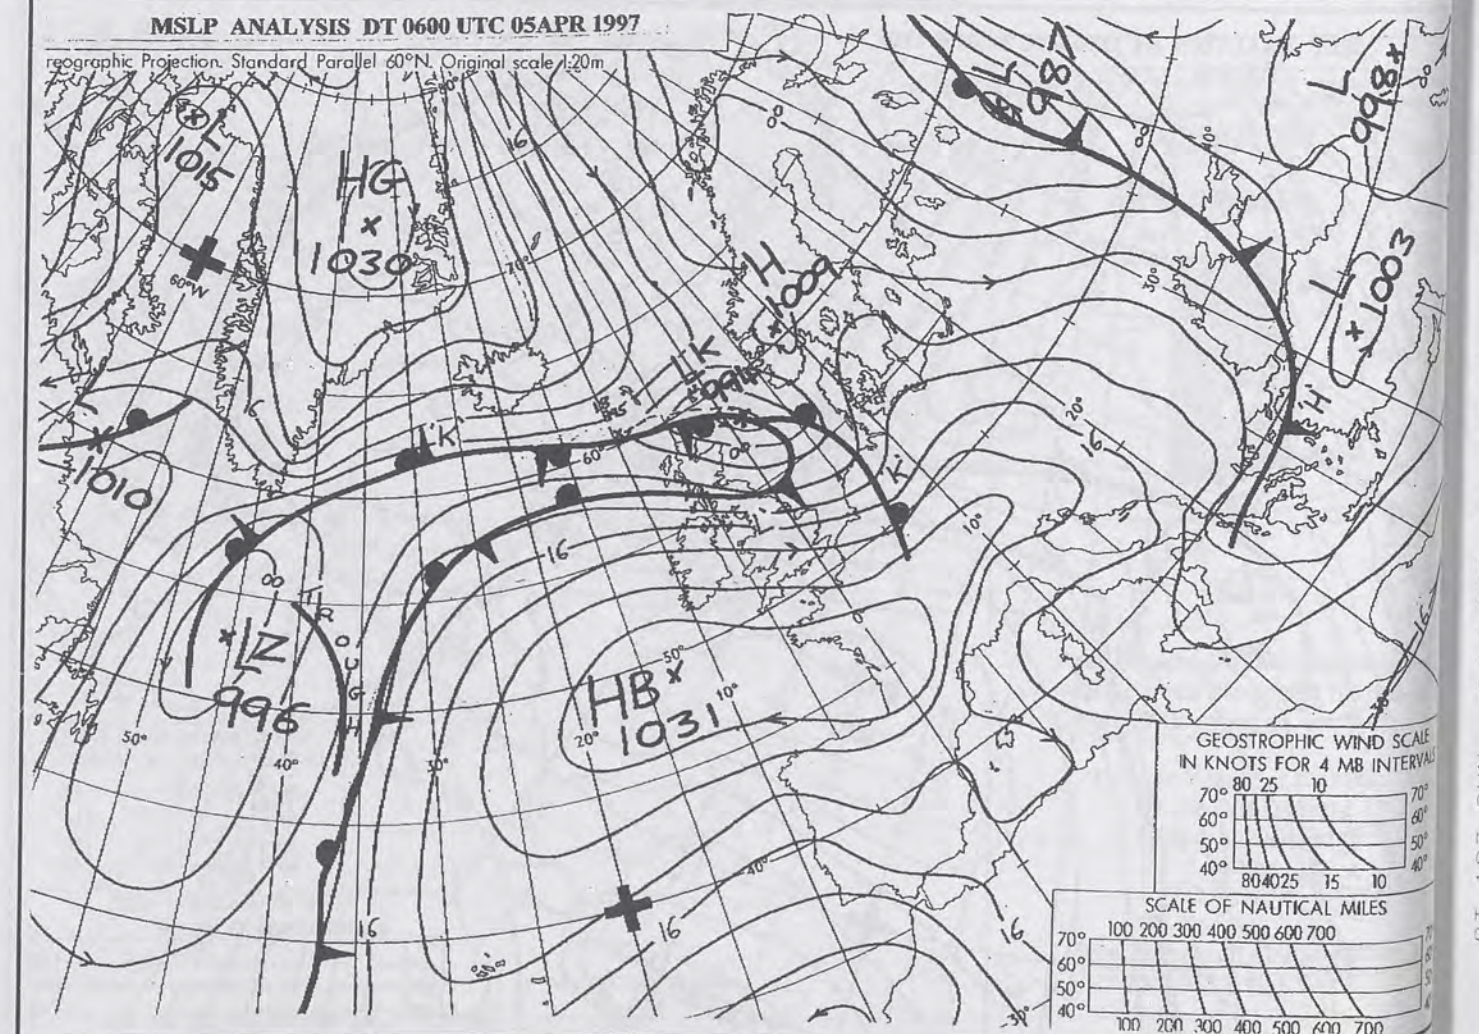 MSLP ANALYSIS DT 0600 UTC 05APR 1997
reographic Projection. Standard Parallel 60°N. Original scale 1:20m
L
987
L
998
L
1015
HG
1030
16
60°W
70°
H
1009
30°
40°
L
1003
'K'
994
'K'
'H'
20°
16
'K'
60°
0°
1010
10°
16
00
TROUGH
LZ
996
50°
40°
30°
HB
1031
50°
10°
20°
0°
40°
16
16
16
16
30°
GEOSTROPHIC WIND SCALE
IN KNOTS FOR 4 MB INTERVALS
80 25 10
70° 70°
60° 60°
50° 50°
40° 40°
80 40 25 15 10
SCALE OF NAUTICAL MILES
100 200 300 400 500 600 700
70°
60°
50°
40°
100 200 300 400 500 600 700